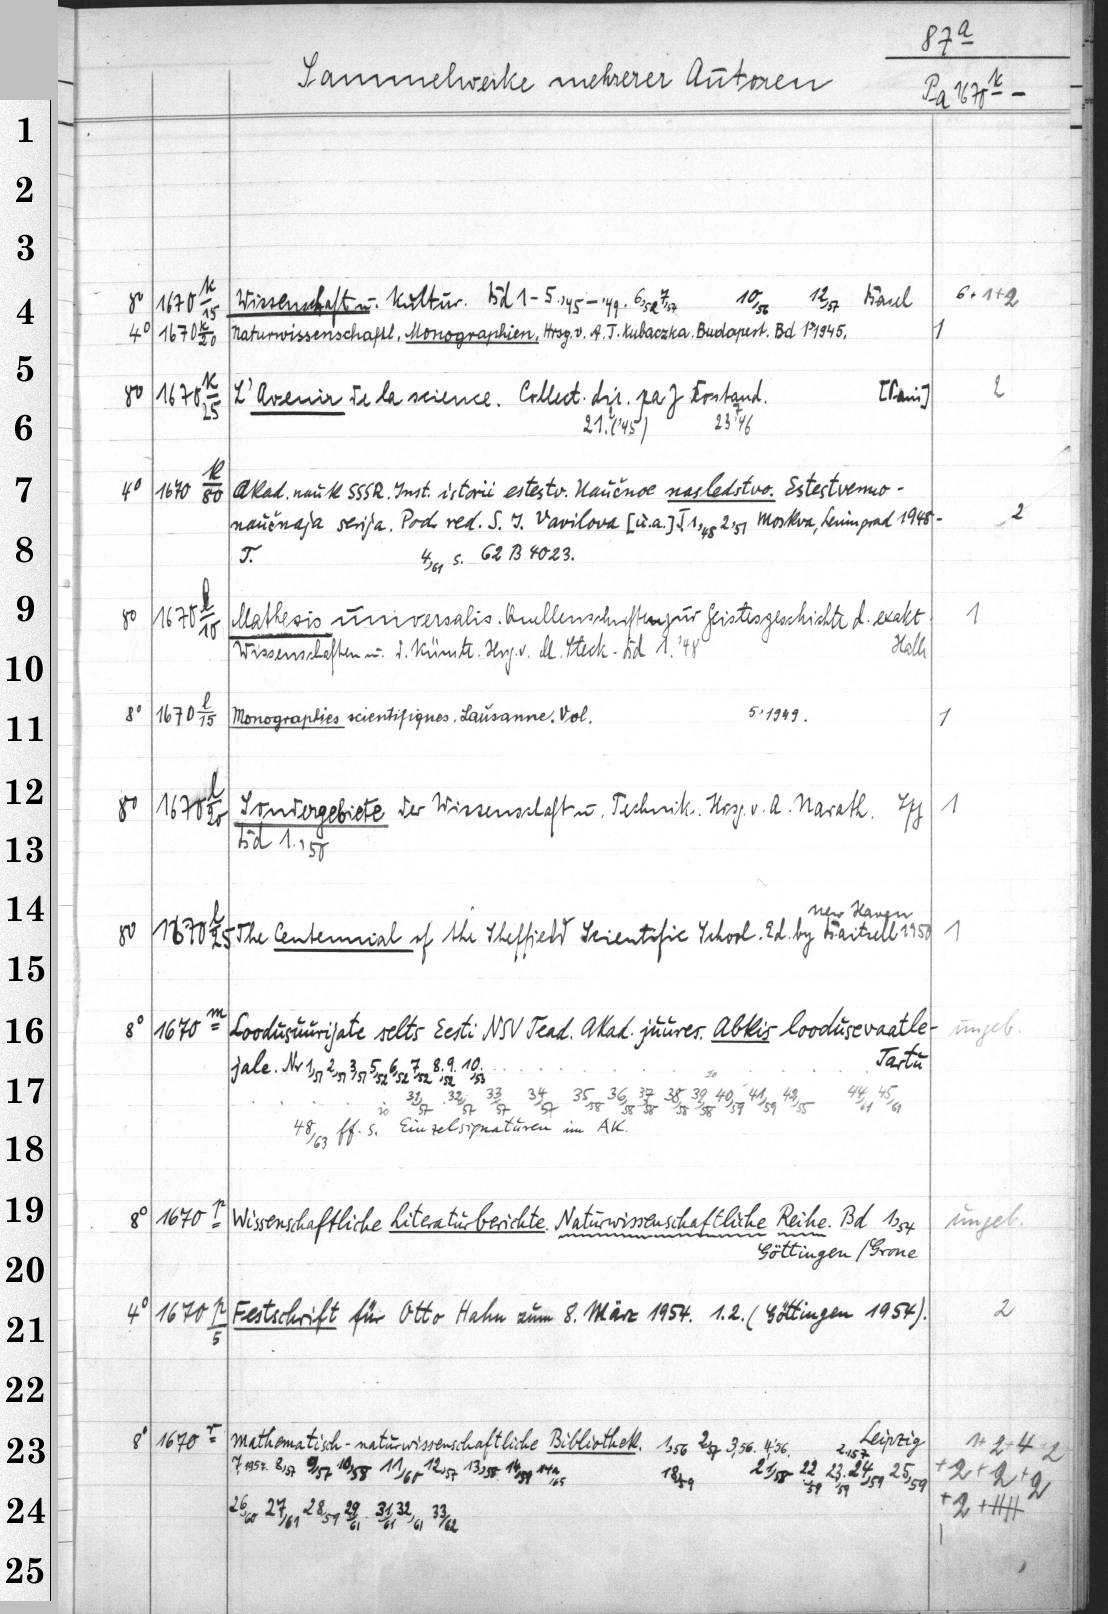 87a
Sammelwerke mehrerer Autoren
Pa 1670 k –
1
2
3
4
8° 1670 k/15 Wissenschaft u. Kultur. Bd 1-5.,45-,49. 6,52 7,57 10,56 12,57 Basel 6+1+2
4° 1670 k/20 Naturwissenschaftl. Monographien, Hrsg. v. A. T. Kubaczka. Budapest. Bd 1,1945. 1
5
8° 1670 k/25 L'Avenir de la science. Collect. dir. pa J Rostand. [Paris] 2
6
21.('45) 23,'46
7
4° 1670 k/80 Akad. nauk SSSR. Inst. istorii estestv. Naučnoe nasledstvo. Estestvenno-
naučnaja serija. Pod red. S. I. Vavilova [u.a.] T 1,48 2,51 Moskva, Leningrad 1948- 2
8
T. 4,61 s. 62 B 4023.
9
8° 1670 l/10 Mathesis universalis. Quellenschriften zur Geistesgeschichte d. exakt. 1
Wissenschaften u. d. Künste. Hrg. v. M. Steck. Bd 1.'48 Halle
10
11
8° 1670 l/15 Monographies scientifiques. Lausanne. Vol. 5,1949. 1
12
8° 1670 l/20 Sondergebiete der Wissenschaft u. Technik. Hrsg. v. A. Narath. Lpg 1
13
Bd 1.,50
14
new Haven
8° 1670 l/25 The Centennial of the Sheffield Scientific School. Ed. by Baitsell 1950 1
15
16
8° 1670 m Loodusuurijate selts Eesti NSV Tead. Akad. juures. Abkis loodusevaatle- ungeb.
jale. Nr 1,51 2,51 3,51 5,52 6,52 7,52 8.9.,52 10,53 Tartu
17
31,57 32,57 33,57 34,57 35,58 36,58 37,58 38,58 39,58 40,59 41,59 42,55 44,61 45,61
48,63 ff. s. Einzelsignaturen im AK.
18
19
8° 1670 p Wissenschaftliche Literaturberichte. Naturwissenschaftliche Reihe. Bd 1,54 ungeb.
Göttingen / Grone
20
4° 1670 p/5 Festschrift für Otto Hahn zum 8. März 1954. 1.2. (Göttingen 1954). 2
21
22
23
8° 1670 r Mathematisch-naturwissenschaftliche Bibliothek. 1,56 2,57 3,56. 4,56. 2.,57 Leipzig 1+2+4+2
7,1957. 8,57 9,57 10,58 11,60 12,57 13,58 14,59 14a,65 18,59 21,58 22,59 23,59 24,59 25,59 +2+2+2
24
26,60 27,61 28,59 29,61 31,61 32,61 33,62 +2+
25